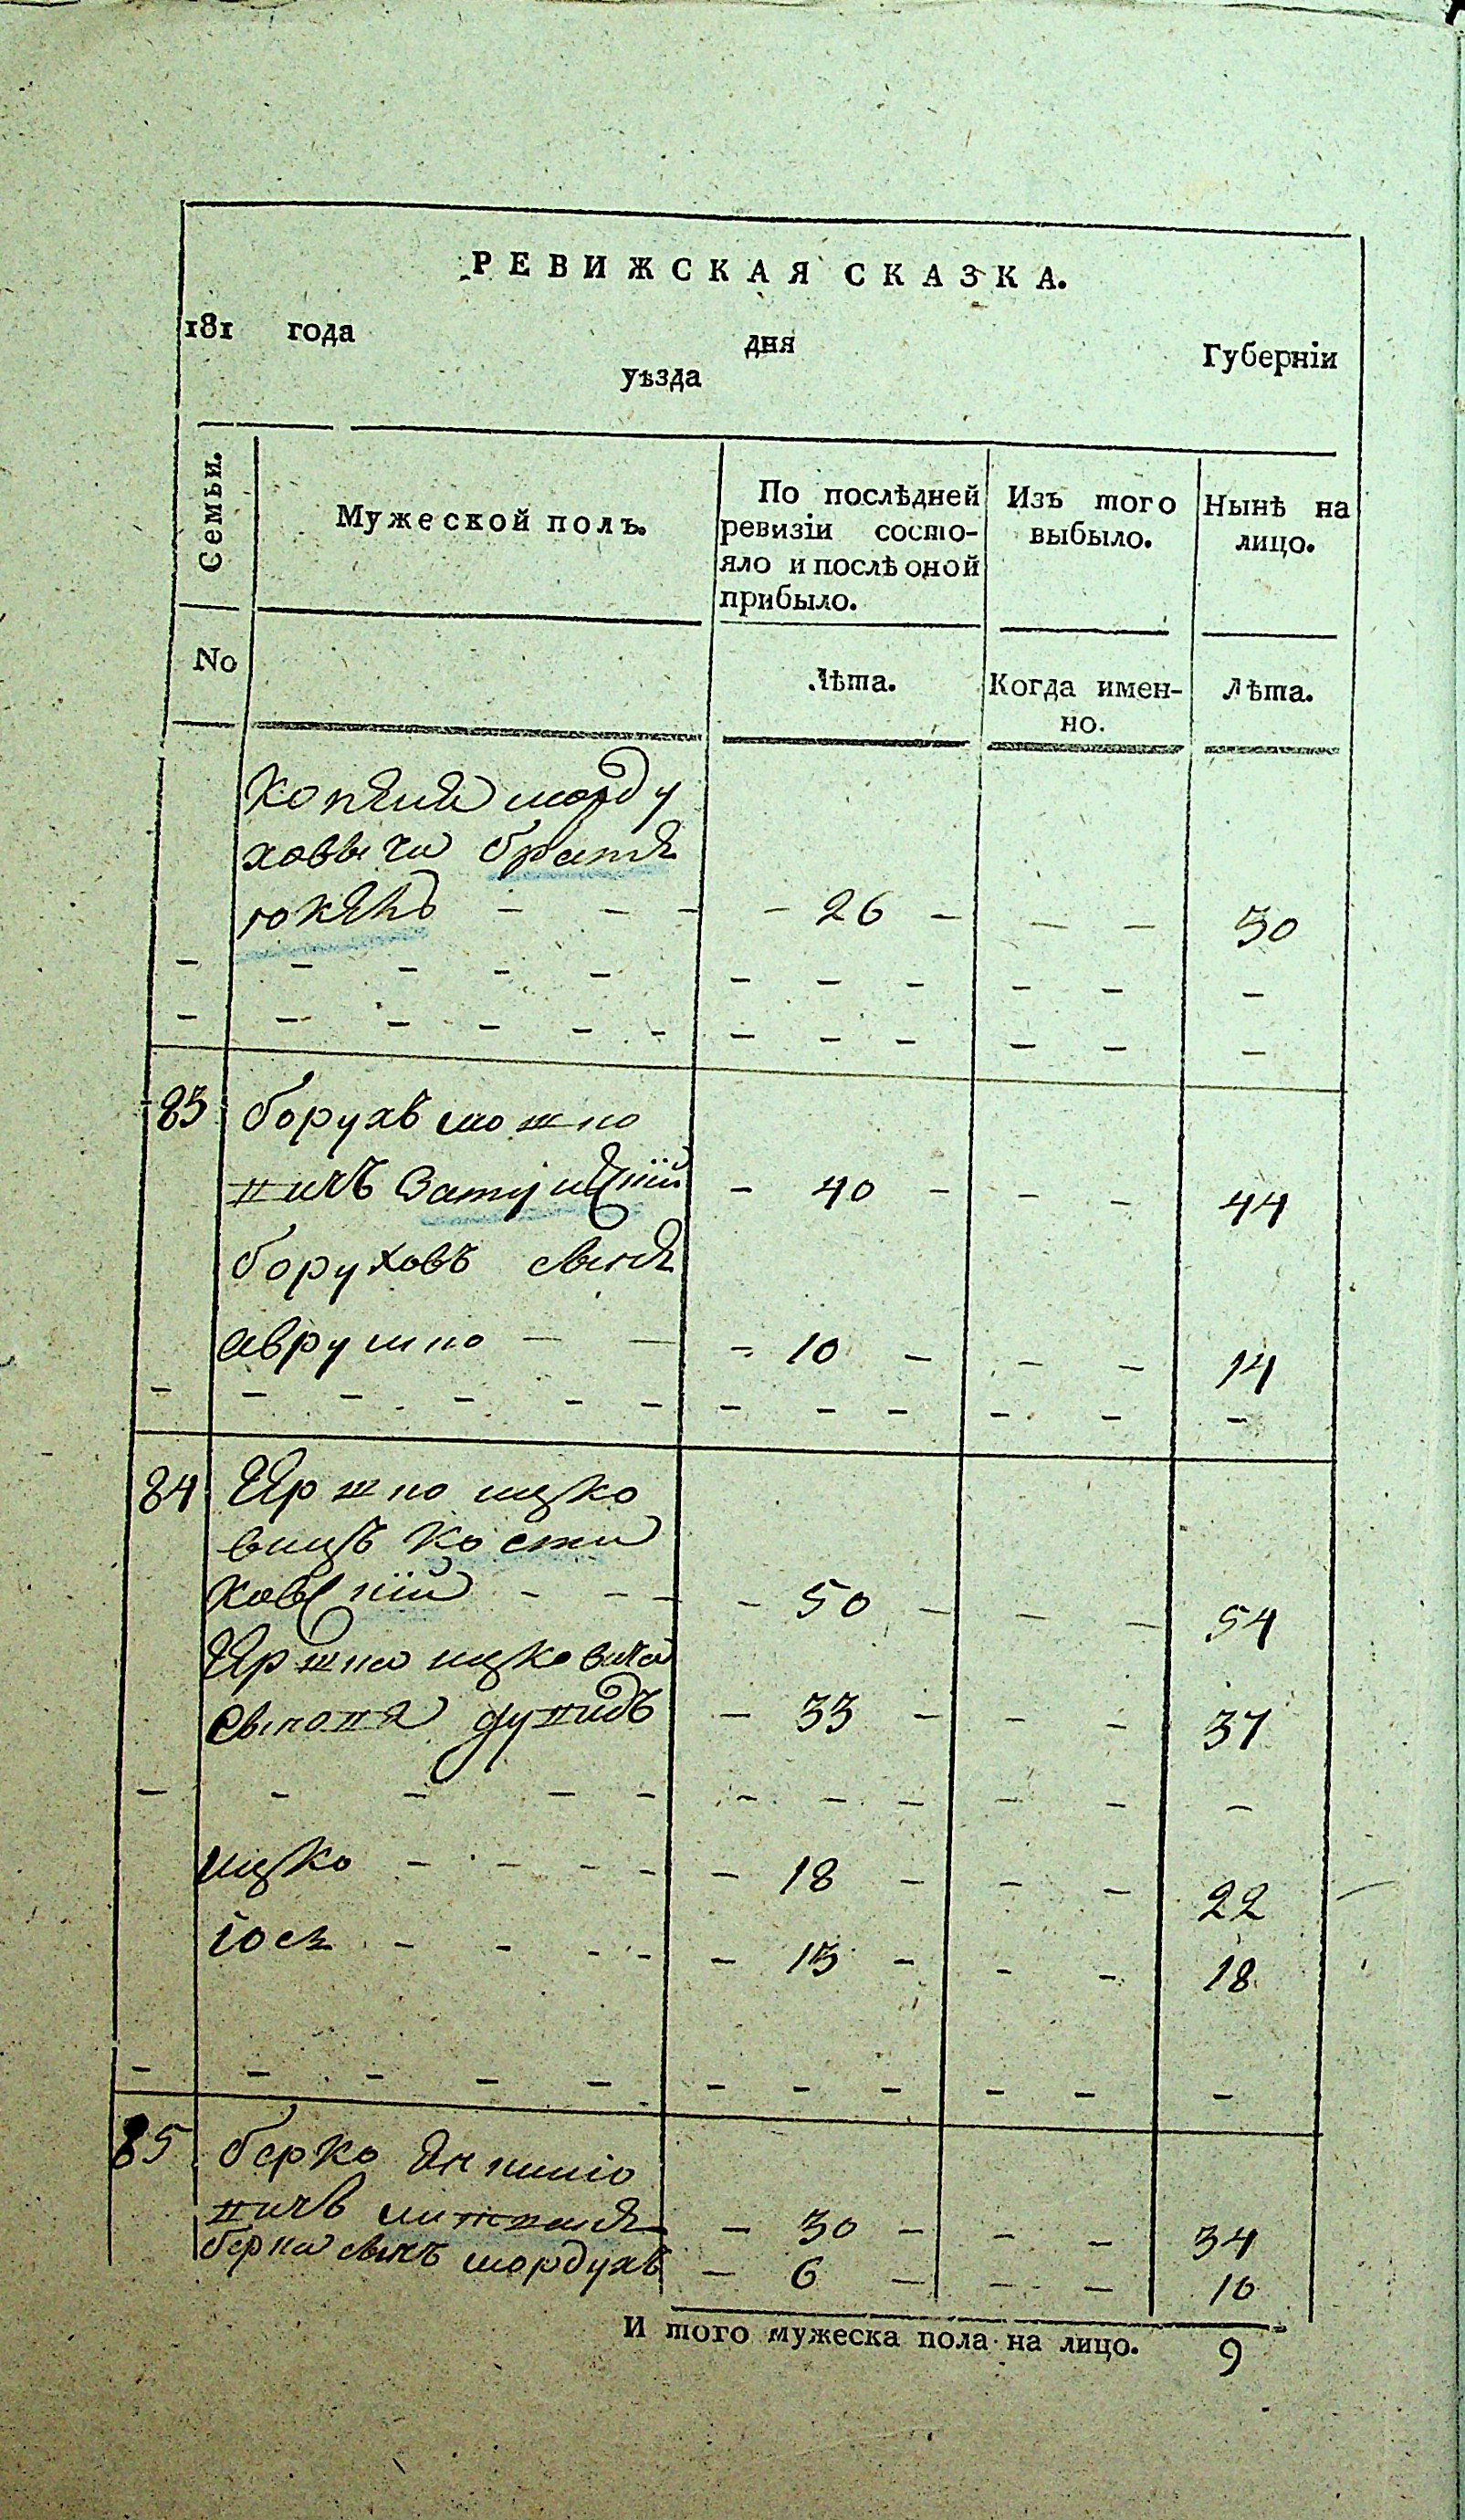 РЕВИЖСКАЯ СКАЗКА.
181 года дня Губерніи
уѣзда
Семьи.
Мужеской полъ.
По послѣдней ревизіи состо-
яло и послѣ оной
прибыло.
Изъ того
выбыло.
Нынѣ на
лицо.
No
Лѣта.
Когда имен-
но.
Лѣта.
морду
ховыча братъ
- - - - 26 - - - 30
- - - - - - - - - - -
- - - - - - - - - - - -
83 борухъ мошко
вичъ - 40 - - - 44
боруховъ сынъ
аврушко - - - 10 - - - 14
- - - - - - - - - - - -
84 Ершко ицко
вичъ Кости
ковскій - - - - 50 - - - 54
Ершка ицковича
сыновя - 33 - - - 37
- - - - - - - - - - -
ицко - - - - - 18 - - - 22
іось - - - - - 13 - - - 18
- - - - - - - - - - -
85 берко
вичъ - 30 - - - 34
берка сынъ мордухъ - 6 - - - 10
И того мужеска пола на лицо. 9